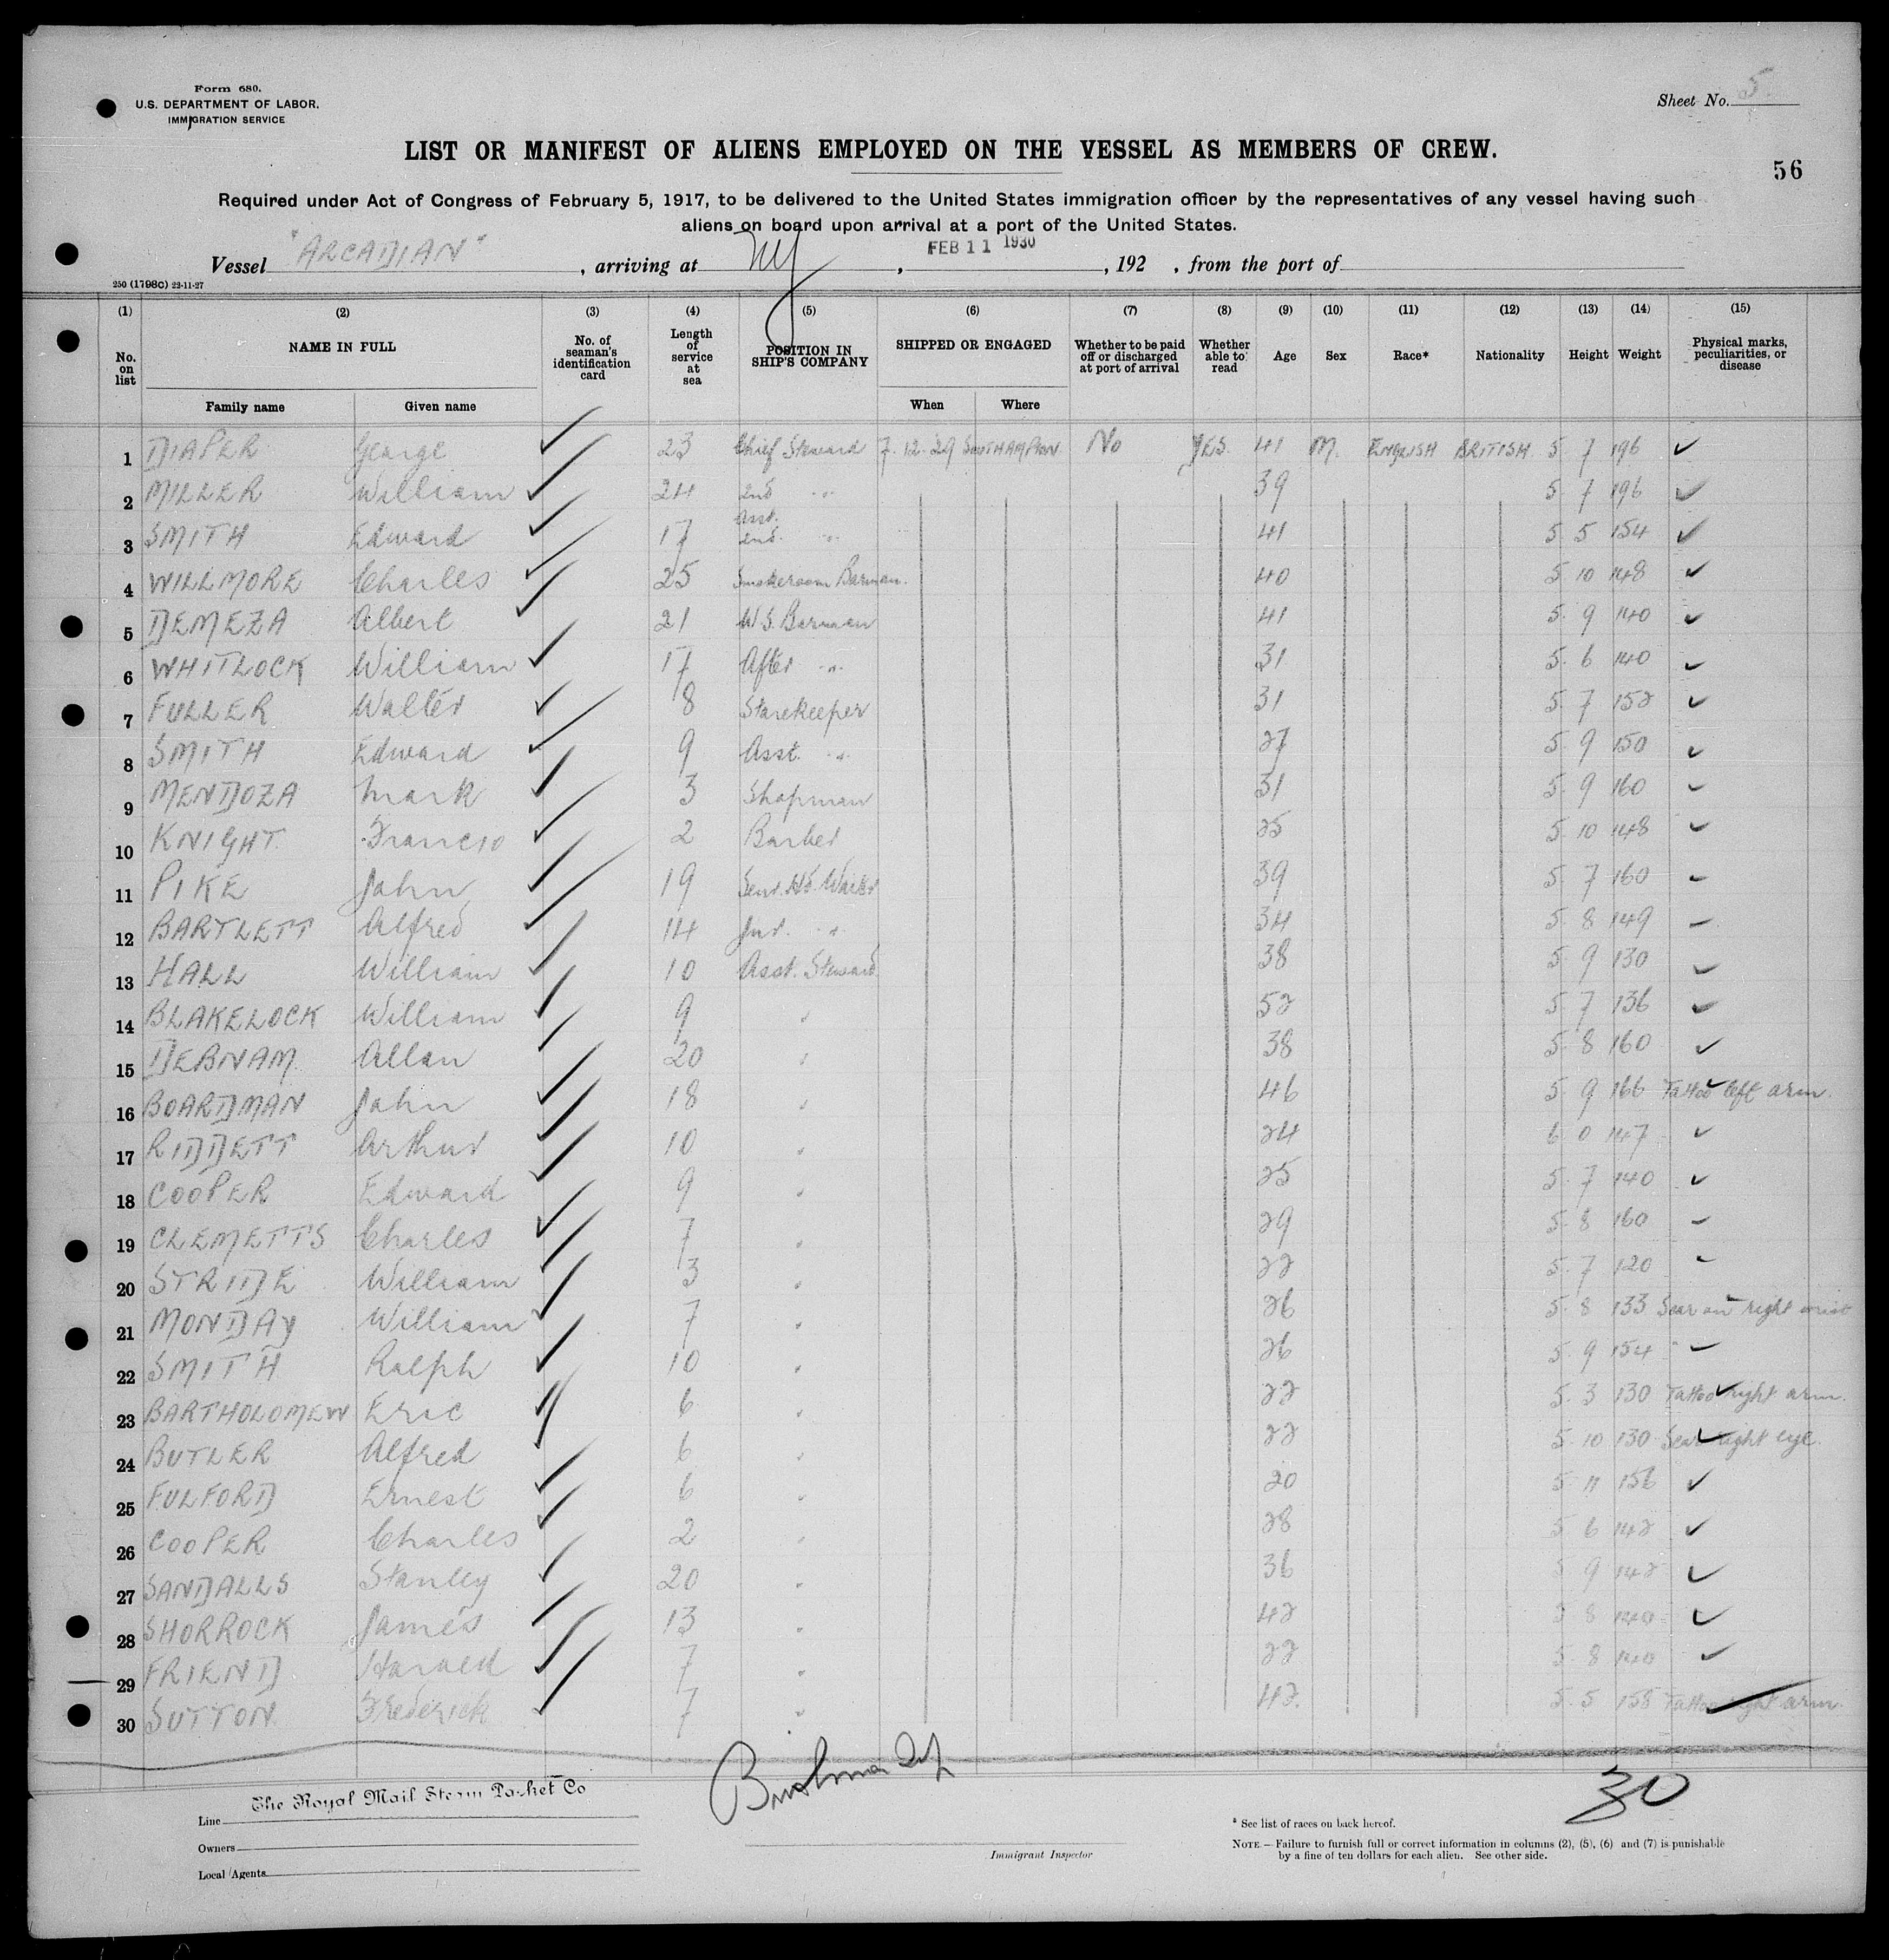 Form 680.
U.S. DEPARTMENT OF LABOR.
IMMIGRATION SERVICE
Sheet No. 5.
LIST OR MANIFEST OF ALIENS EMPLOYED ON THE VESSEL AS MEMBERS OF CREW.
56
Required under Act of Congress of February 5, 1917, to be delivered to the United States immigration officer by the representatives of any vessel having such
aliens on board upon arrival at a port of the United States.
Vessel "ARCADIAN", arriving at NY, FEB 11 1930, 192 , from the port of
250 (1798C) 22-11-27
(1) (2) (3) (4) (5) (6) (7) (8) (9) (10) (11) (12) (13) (14) (15)
No. on list NAME IN FULL No. of seaman's identification card Length of service at sea POSITION IN SHIP'S COMPANY SHIPPED OR ENGAGED Whether to be paid off or discharged at port of arrival Whether able to read Age Sex Race* Nationality Height Weight Physical marks, peculiarities, or disease
Family name Given name When Where
1 DIAPER George 23 Chief Steward 7.12.29 SOUTHAMPTON No YES. 41 M. ENGLISH BRITISH 5 7 196
2 MILLER William 24 2nd " 39 5 7 196
3 SMITH Edward 17 Asst. 2nd " 41 5 5 154
4 WILLMORE Charles 25 Smokeroom Barman. 40 5 10 148
5 DEMEZA Albert 21 W S. Barman 41 5 9 140
6 WHITLOCK William 17 After " 31 5 6 140
7 FULLER Walter 8 Storekeeper 31 5 7 152
8 SMITH Edward 9 Asst. " 27 5 9 150
9 MENDOZA Mark 3 Shopman 31 5 9 160
10 KNIGHT. Francis 2 Barber 25 5 10 148
11 PIKE John 19 Senr. Waiter 39 5 7 160
12 BARTLETT Alfred 14 Jnr. " 34 5 8 149
13 HALL William 10 Asst. Steward 38 5 9 130
14 BLAKELOCK William 9 " 52 5 7 136
15 DEBNAM. Allan 20 " 38 5 8 160
16 BOARDMAN John 18 " 46 5 9 166 Tattoo left arm.
17 RIDDETT Arthur 10 " 24 6 0 147
18 COOPER Edward 9 " 25 5 7 140
19 CLEMETTS Charles 7 " 29 5 8 160
20 STRIDE William 3 " 22 5 7 120
21 MONDAY William 7 " 26 5 8 133 Scar on right wrist
22 SMITH Ralph 10 " 26 5 9 154
23 BARTHOLOMEW Eric 6 " 22 5 3 130 Tattoo right arm.
24 BUTLER Alfred 6 " 22 5 10 130 Scar right eye.
25 FULFORD Ernest 6 " 20 5 11 156
26 COOPER Charles 2 " 28 5 6 142
27 SANDALLS Stanley 20 " 36 5 9 142
28 SHORROCK James 13 " 42 5 8 140
29 FRIEND Harold 7 " 22 5 8 140
30 SUTTON Frederick 7 " 42. 5 5 158 Tattoo right arm.
30
The Royal Mail Steam Packet Co
Line
Owners
Local Agents
Immigrant Inspector
* See list of races on back hereof.
NOTE — Failure to furnish full or correct information in columns (2), (5), (6) and (7) is punishable
by a fine of ten dollars for each alien. See other side.